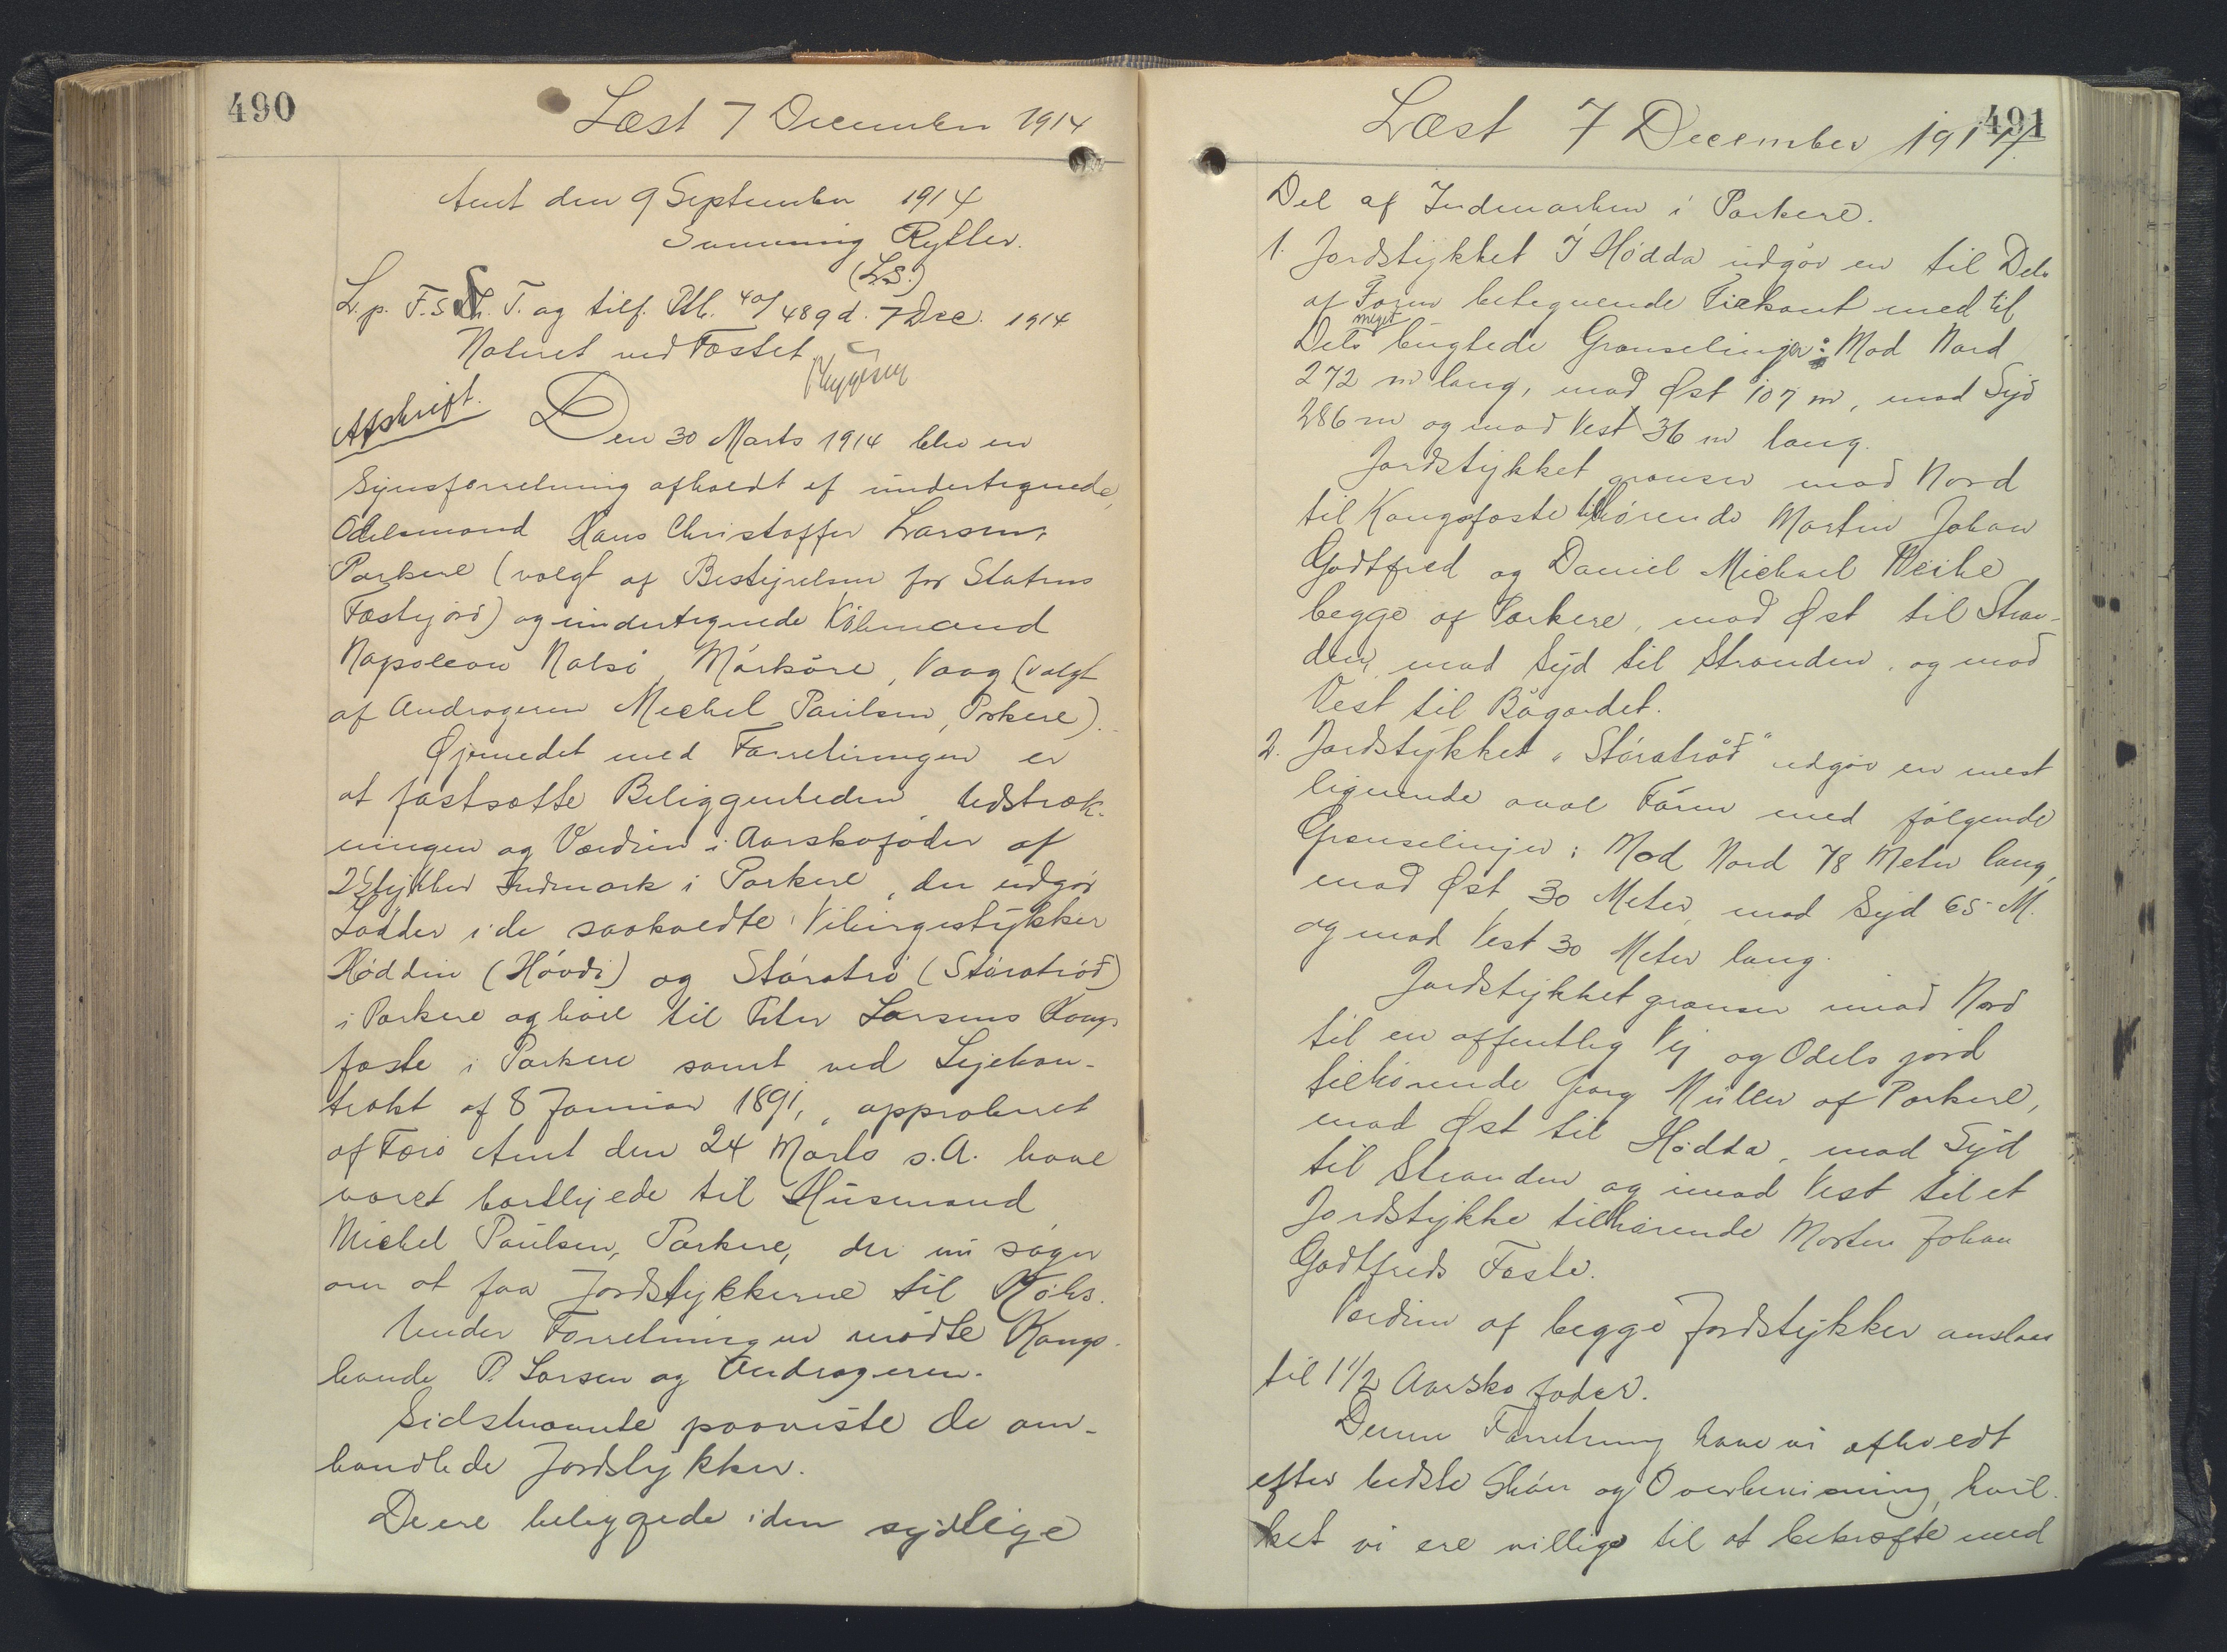 490
Læst 7 December 1914
Amt den 9 September 1914
Svenning Rytter.
(L.S.)
L. p. F. S. Th. T. og tilf. Ptb. 40/489 d. 7 Dec. 1914
Noteret ved Fæstet
Afskrift.
Den 30 Marts 1914 blev en
Synsforretning afholdt af undertegnede,
Odelsmand Hans Christoffer Larsen,
Porkere (valgt af Bestyrelsen for Statens
Fæstejord) og undertegnede Købmand
Napoleon Nolsø, Mørkøre, Vaag (valgt
af Andrageren Michel Paulsen, Porkere).
Øjemedet med Forretningen er
at fastsætte Beliggenheden, Udstræk-
ningen og Værdien i Aarskofoder af
2 Stykker Indmark i Porkere, der udgør
Lodder i de saakaldte Vikingestykker
Høddin (Hövdi) og Stóratrø (Stóratrøð)
i Porkere og høre til Peter Larsens Kongs
fæste i Porkere samt ved Lejekon-
trakt af 8 Januar 1891, approberet
af Færø Amt den 24 Marts s. A. have
været bortlejede til Husmand
Michel Paulsen, Porkere, der nu søger
om at faa Jordstykkerne til Købs.
Under Forretningen mødte Kongs-
bonde P. Larsen og Andrageren.
Sidstnævnte paaviste de om-
handlede Jordstykker.
De ere beliggende i den sydlige
491
Læst 7 December 1914
Del af Indmarken i Porkere.
1. Jordstykket Í Hødda udgør en til Dels
af Form betegnende Firkant med til
Dels meget bugtede Grænselinjer: Mod Nord
272 m lang, mod Øst 107 m, mod Syd
286 m og mod Vest 36 m lang.
Jordstykket grænser mod Nord
til Kongsfæste tilhørende Morten Johan
Godtfred og Daniel Michael Weihe
begge af Porkere, mod Øst til Stran-
den, mod Syd til Stranden og mod
Vest til Bøgardet.
2. Jordstykket "Stóratrøð" udgør en mest
lignende oval Form med følgende
Grænselinjer: Mod Nord 78 Meter lang,
mod Øst 30 Meter, mod Syd 65 M.
og mod Vest 30 Meter lang.
Jordstykket grænser mod Nord
til en offentlig Vej og Odels jord
tilhørende Georg Müller af Porkere,
mod Øst til Hødda, mod Syd
til Stranden og imod Vest til et
Jordstykke tilhørende Morten Johan
Godtfreds Fæste.
Værdien af begge Jordstykker anslaaes
til 1 1/2 Aarsko foder.
Denne Forretning have vi afholdt
efter bedste Skøn og Overbevisning, hvil-
ket vi ere villige til at bekræfte med